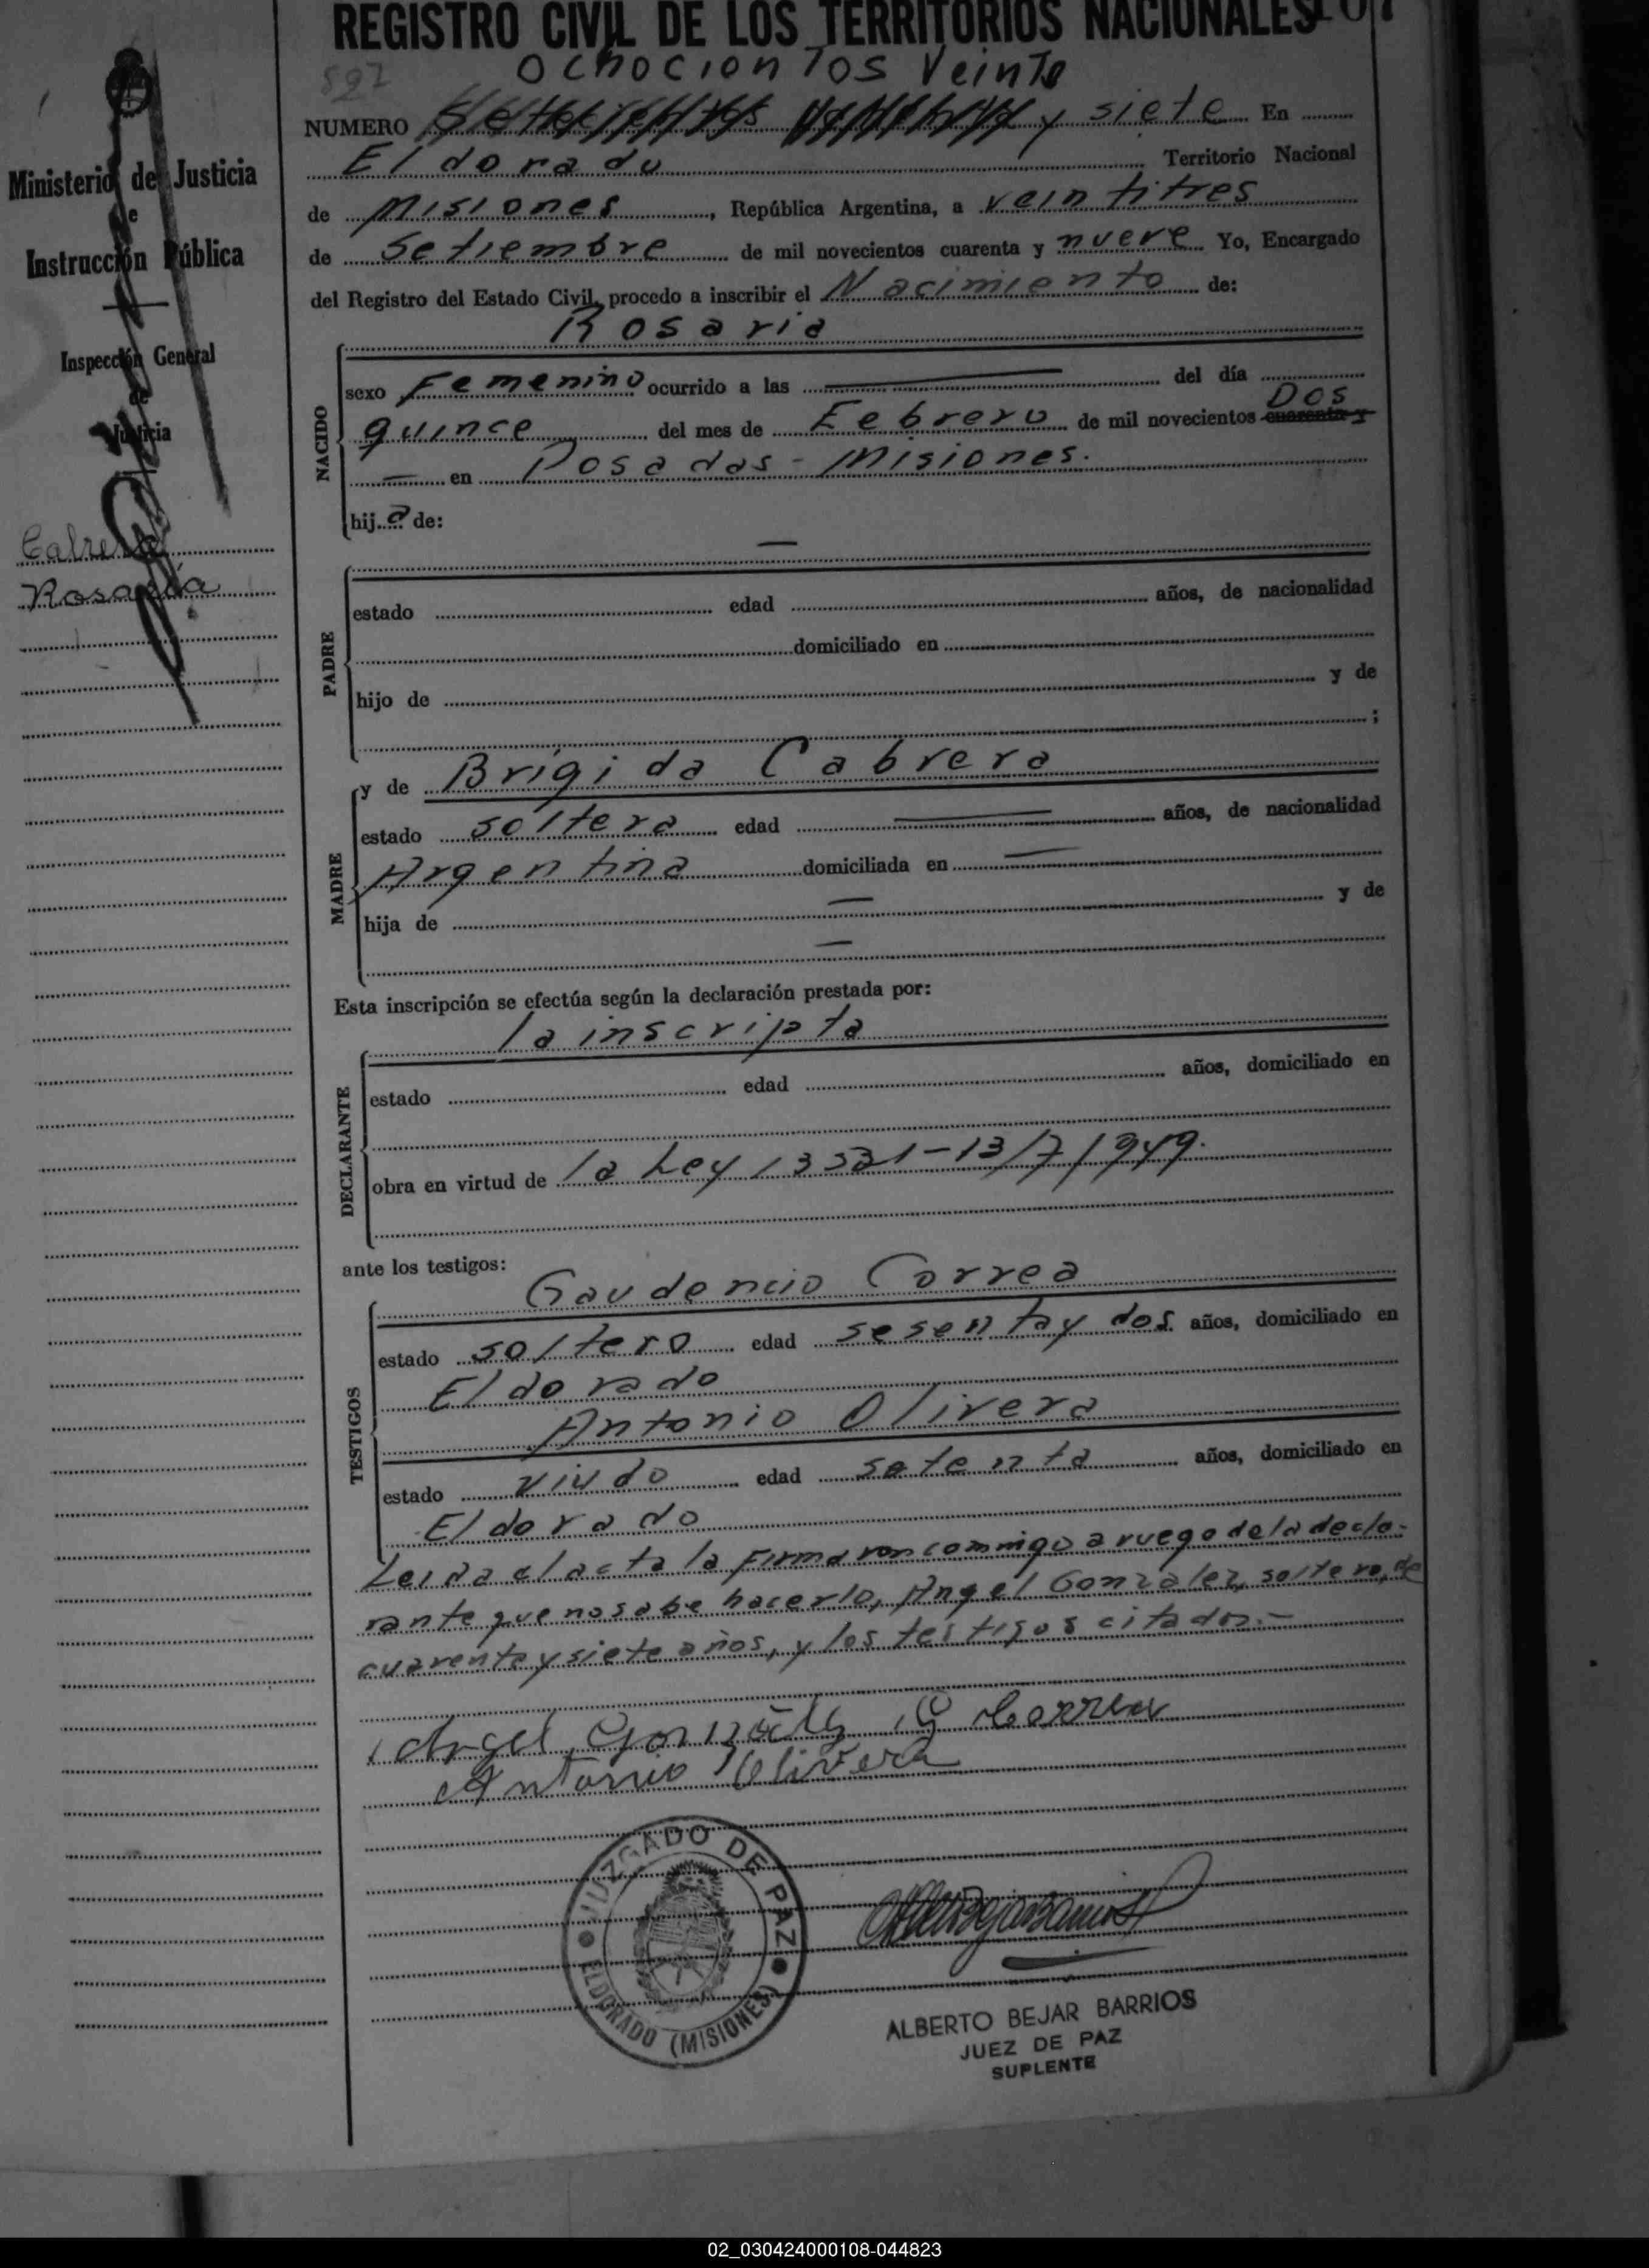 REGISTRO CIVIL DE LOS TERRITORIOS NACIONALES
827
Ochocientos Veinte
NUMERO y siete En
Eldorado Territorio Nacional
de Misiones, República Argentina, a veintitres
de Setiembre de mil novecientos cuarenta y nueve Yo, Encargado
del Registro del Estado Civil, procedo a inscribir el Nacimiento de:
Ministerio de Justicia
de
Instrucción Pública
Inspección General
de
Justicia
Cabrera
Rosaria
NACIDO
Rosaria
sexo Femenino ocurrido a las — del día
Dos
quince del mes de Febrero de mil novecientos cuarenta y
— en Posadas - Misiones.
hija de:
PADRE
—
estado edad años, de nacionalidad
domiciliado en
hijo de y de
;
MADRE
y de Brígida Cabrera
estado soltera edad — años, de nacionalidad
Argentina domiciliada en —
hija de — y de
—
Esta inscripción se efectúa según la declaración prestada por:
DECLARANTE
la inscripta
estado edad años, domiciliado en
obra en virtud de la Ley 13-13/7/1949.
ante los testigos:
TESTIGOS
Gaudencio Correa
estado soltero edad sesenta y dos años, domiciliado en
Eldorado
Antonio Olivera
estado viudo edad setenta años, domiciliado en
Eldorado
Leida el acta la firmaron conmigo a ruego de la decla-
rante que no sabe hacerlo, Angel Gonzalez, soltero, de
cuarenta y siete años, y los testigos citados.-
Angel González G Correa
Antonio Olivera
JUZGADO DE PAZ
ELDORADO (MISIONES)
ALBERTO BEJAR BARRIOS
JUEZ DE PAZ
SUPLENTE
02_030424000108-044823